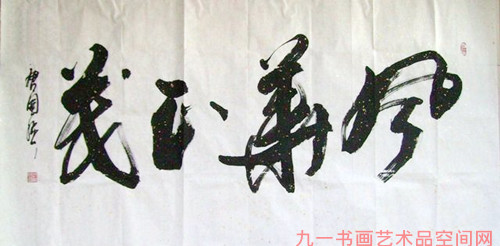 风華正茂
九一书画艺术品空间网